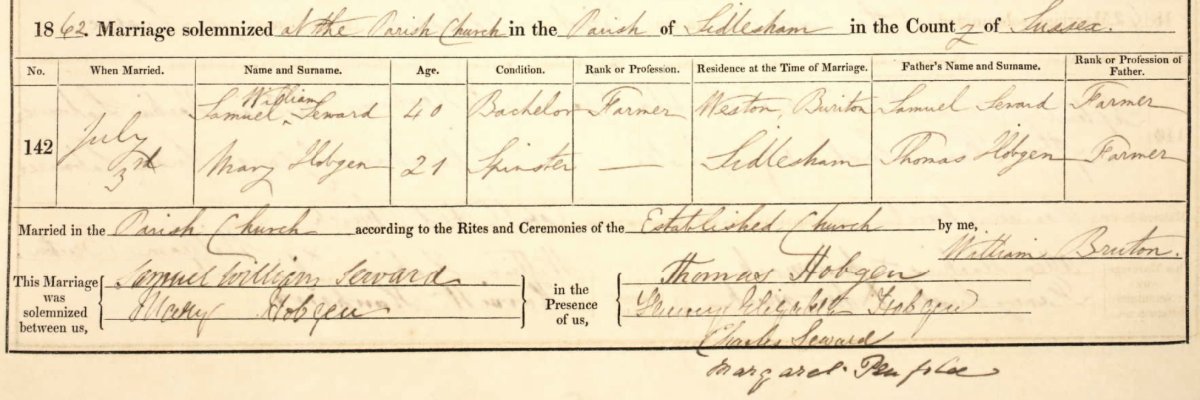 1862. Marriage solemnized at the Parish Church in the Parish of Sidlesham in the County of Sussex.
No. When Married. Name and Surname. Age. Condition. Rank or Profession. Residence at the Time of Marriage. Father's Name and Surname. Rank or Profession of Father.
142 July 3rd
Samuel William Seward 40 Bachelor Farmer Weston, Buriton Samuel Seward Farmer
Mary Hobgen 21 Spinster — Sidlesham Thomas Hobgen Farmer
Married in the Parish Church according to the Rites and Ceremonies of the Established Church by me,
William Bruton.
This Marriage was solemnized between us,
Samuel William Seward
Mary Hobgen
in the Presence of us,
Thomas Hobgen
Elizabeth Hobgen
Charles Seward
Margaret